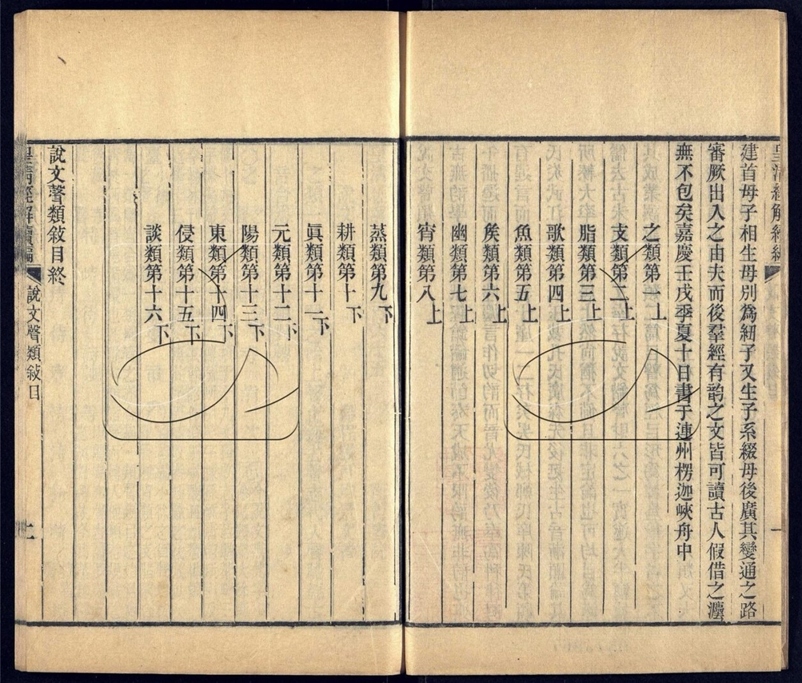 皇清經解續編
建首母子相生母別爲紐子又生子系綴母後廣其變通之路
審厥出入之由夫而後羣經有韵之文皆可讀古人假借之灋
無不包矣嘉慶壬戌季夏十日書于連州楞迦峽舟中
之類第一上
支類第二上
脂類第三上
歌類第四上
魚類第五上
矦類第六上
幽類第七上
宵類第八上
蒸類第九下
耕類第十下
眞類第十一下
元類第十二下
陽類第十三下
東類第十四下
侵類第十五下
談類第十六下
說文聲類敍目終
皇清經解續編
說文聲類敍目